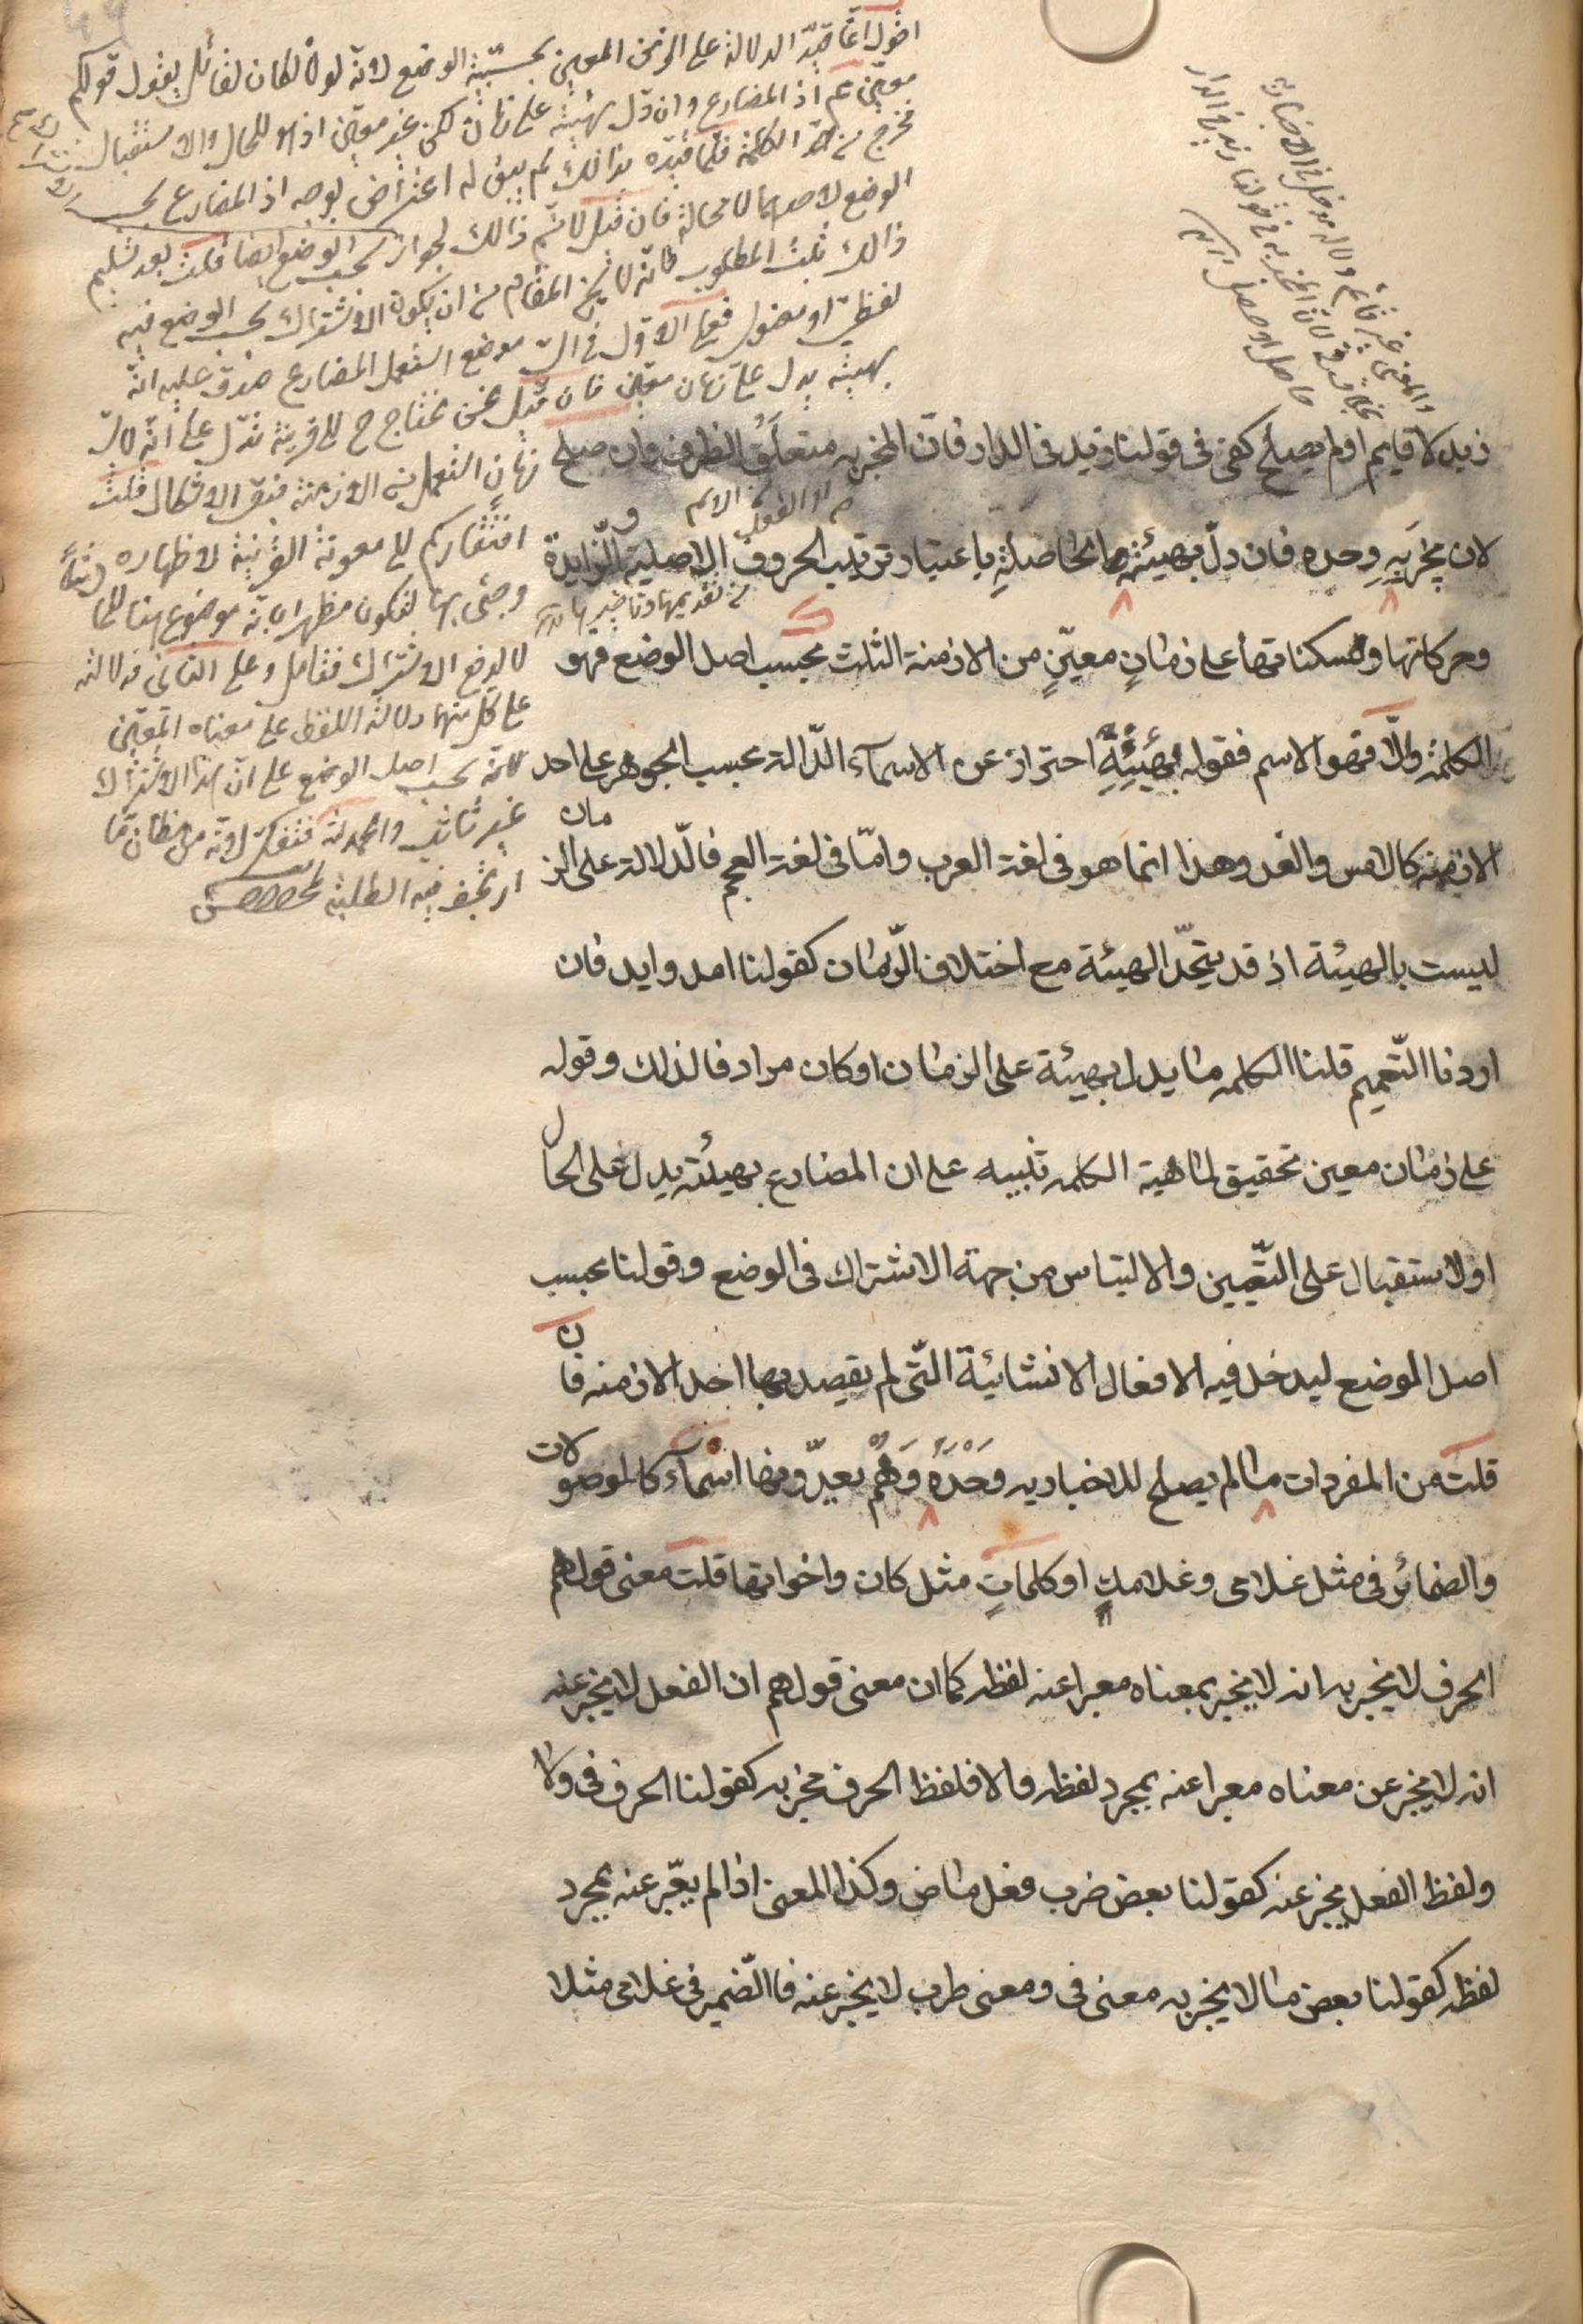 زيد لا قايم اولم يصلح كفى فى قولنا زيد فى الدار فان المخبر به متعلق الظرف وان صلح
لان يخبر به وحده فان دل بهيئته الحاصلة باعتبار ترتيب الحروف الاصلية والزايدة
وحركاتها وسكناتها على زمان معين من الازمنة الثلث بحسب اصل الوضع فهو
الكلمة والا فهو الاسم فقوله بهيئة احتراز عن الاسمآء الدالة بحسب الجوهر على احد
الازمنة كالامس والغد وهذا انما هو فى لغة العرب واما فى لغة العجم فالدلالة على الزمان
ليست بالهيئة اذ قد يتحد الهيئة مع اختلاف الزمان كقولنا امد وايد فان
اردنا التعميم قلنا الكلمة ما يدل بهيئة على الزمان او كان مرادفا لذلك وقوله
على زمان معين تحقيق لماهية الكلمة تنبيه على ان المضارع بهيئته يدل على الحال
او الاستقبال على التعيين والالتباس من جهة الاشتراك فى الوضع وقولنا بحسب
اصل الوضع ليدخل فيه الافعال الانشائية التى لم يقصد بها احد الازمنة فان
قلت من المفردات ما لم يصلح للاخبار به وحده وهم يعدونها اسمآء كالموصولات
والضمائر فى مثل غلامى وغلامك او كلمات مثل كان واخواتها قلت معنى قولهم
الحرف لا يخبر به انه لا يخبر بمعناه معبرا عنه لفظه كما ان معنى قولهم ان الفعل لا يخبر عنه
انه لا يخبر عن معناه معبرا عنه بمجرد لفظه والا فلفظ الحرف مخبر به كقولنا الحرف فى ولا
ولفظ الفعل يخبر عنه كقولنا بعض ضرب فعل ماض وكذا المعنى اذا لم يعبر عنه بمجرد
لفظه كقولنا بعض ما لا يخبر به معنى فى ومعنى ضرب لا يخبر عنه فالضمير فى غلامى مثلا
اقول انما قيد الدلالة على الزمن المعين بحسب الوضع لانه لولا لكان لقائل يقول قولكم
معين عم اذ المضارع وان دل بهيئته على زمان لكن غير معين اذ هو للحال والاستقبال
مخرج من الكلمة فلما قيده بذالك لم يبق له اعتراض بوجه اذ المضارع بحسب
الوضع لاحدهما لا محالة فان قيل لا نم ذالك لجواز بحسب الوضع ايضا قلت بعد تسليم
ذالك ثبت المطلوب لانه لا يخ المقام من ان يكون الاشتراك بحسب الوضع فيه
لفظى او معنوى فعلى الاول فى اى موضع استعمل المضارع صدق عليه انه
بهيئته يدل على زمان معين فان قيل نحن نحتاج ح الى قرينة تدل على انه لاى
زمان استعمل من الازمنة فبقى الاشكال قلت
افتقاركم الى معونة القرينة لاظهاره
وجئ بها لتكون مظهرا بانه موضوع
لا لرفع الاشتراك فتامل وعلى الثانى فدلالته
على كل منهما دلالة اللفظ على معناه المعين
لانه بحسب اصل الوضع على ان هذا الاشتراك
غير ثابت والحمد لله فتفكر لانه من مظان ما
ارتجف فيه الطلبة